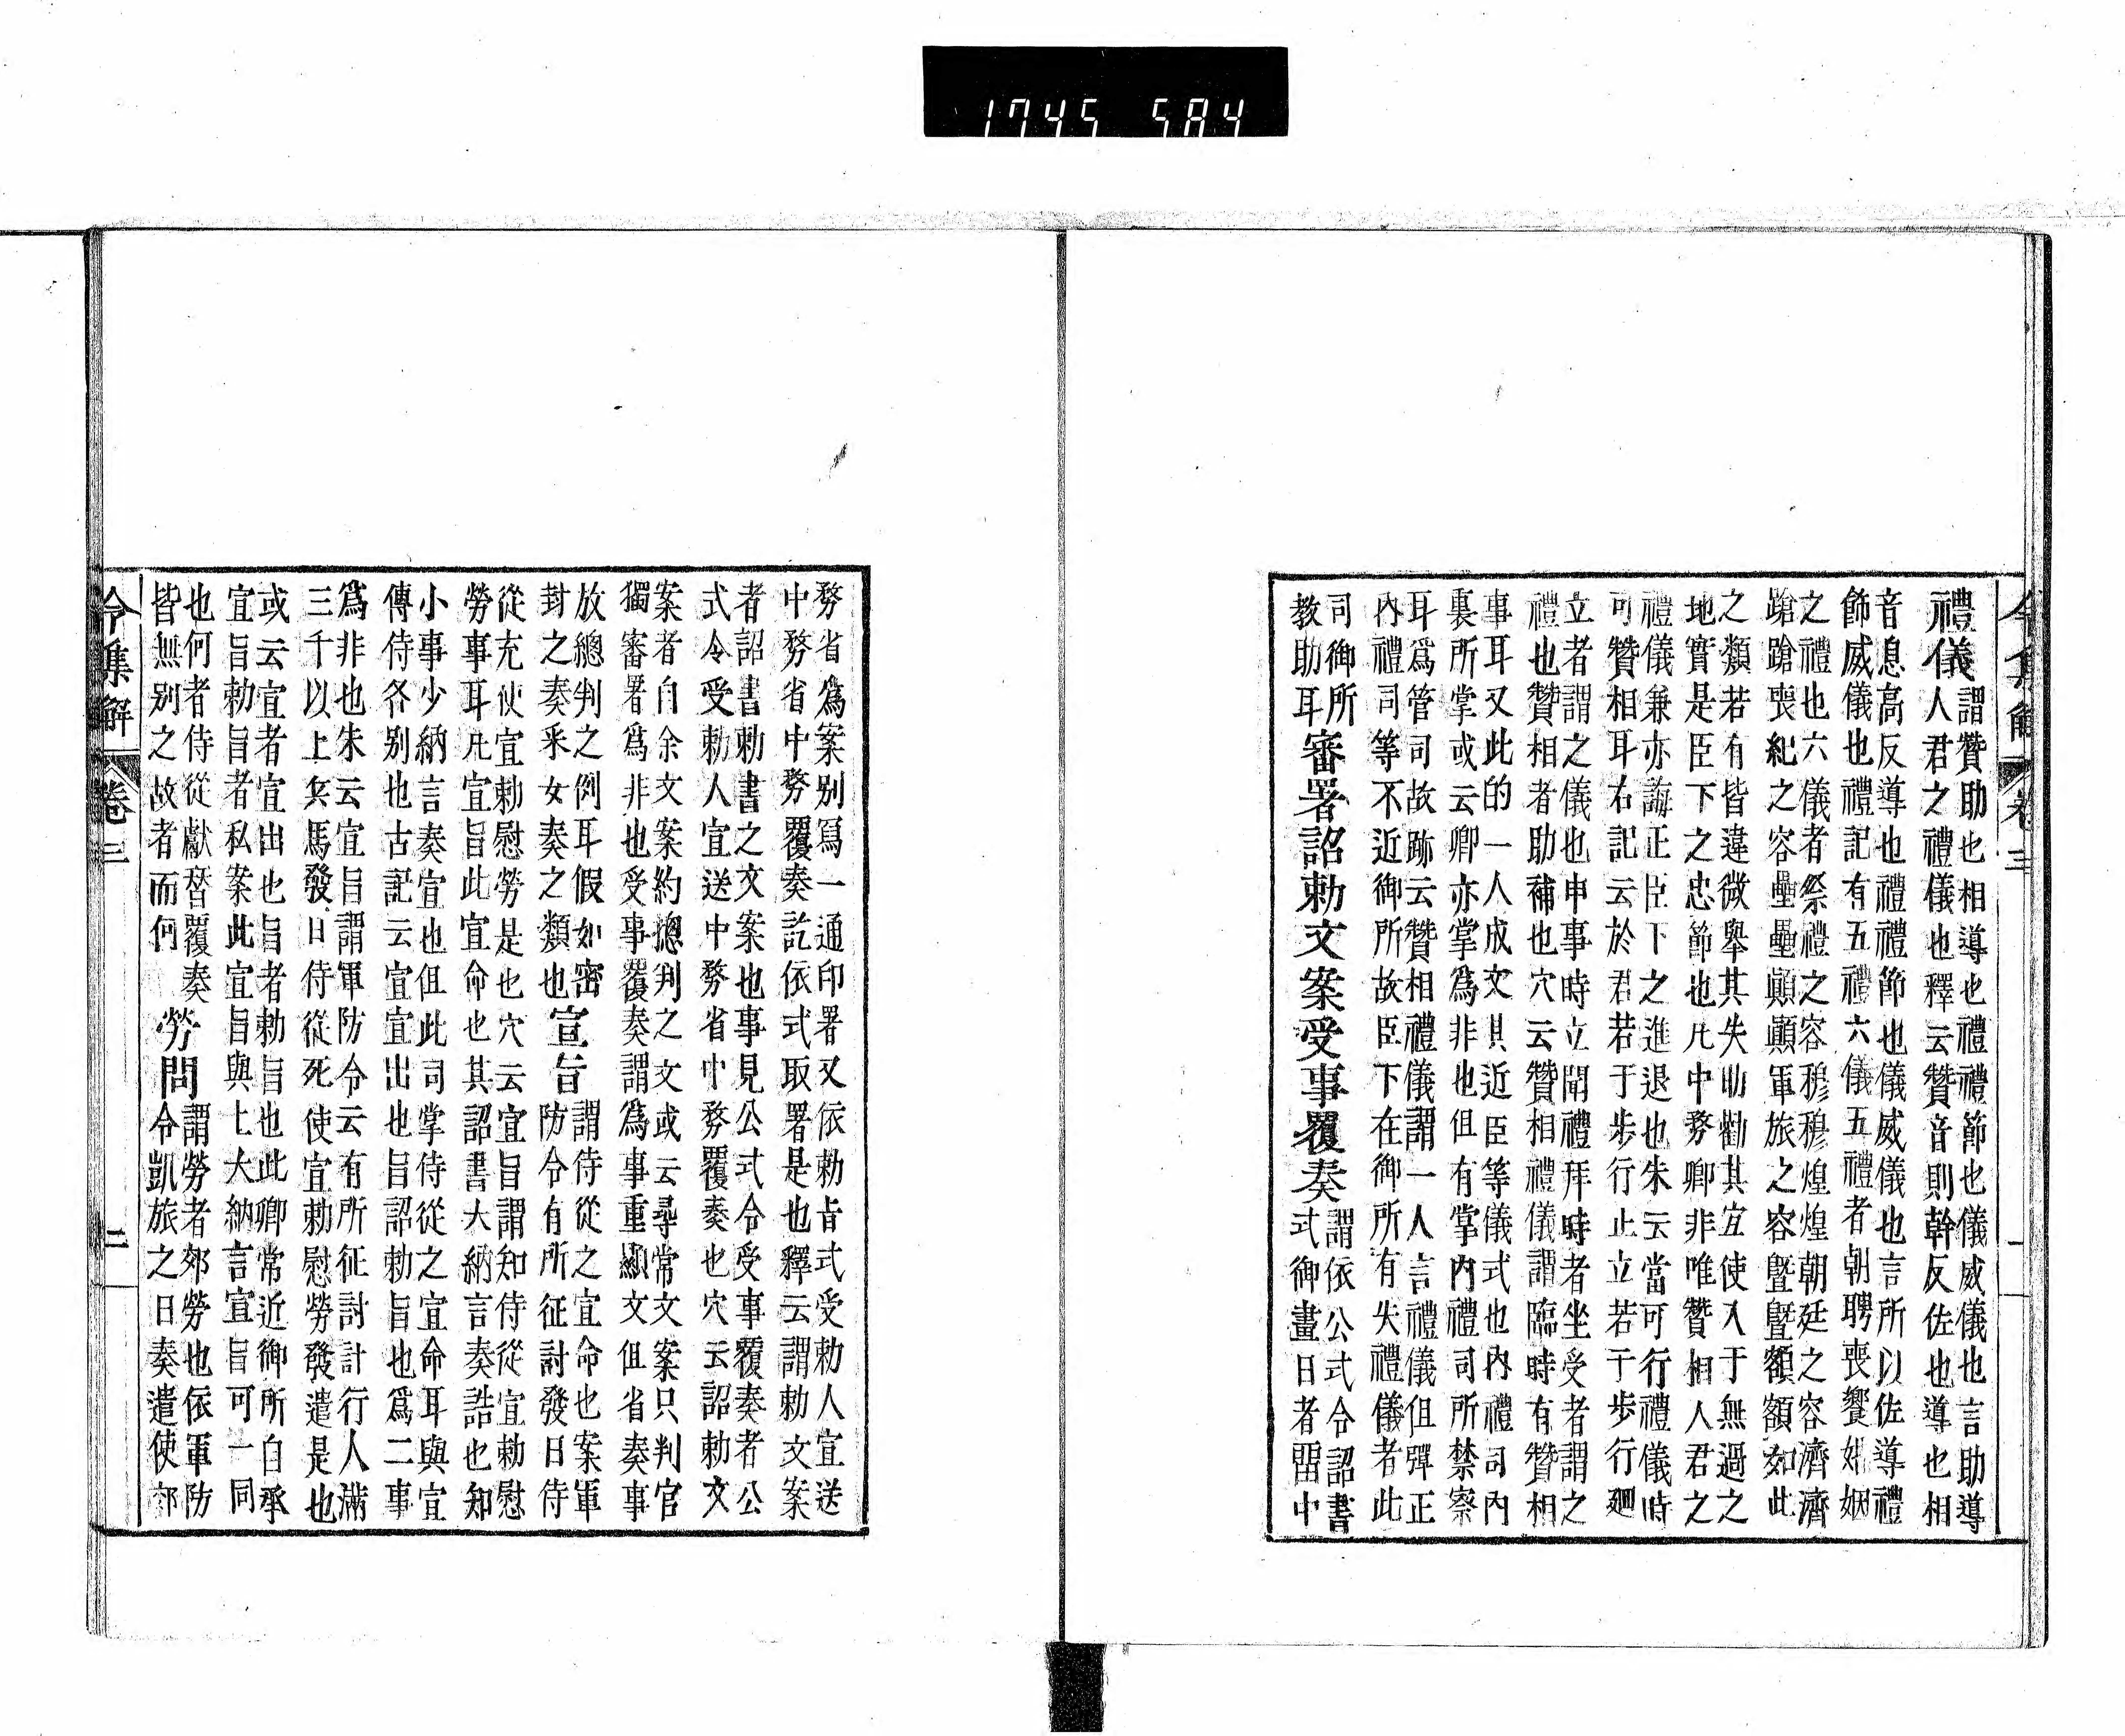 1745 584
令集解 卷三 一
禮儀謂贊助也相導也禮禮節也儀威儀也言助導
人君之禮儀也釋云贊音則幹反佐也導也相
音息高反導也禮禮節也儀威儀也言所以佐導禮
飾威儀也禮記有五禮六儀五禮者朝聘喪饗婚姻
之禮也六儀者祭禮之容穆穆煌煌朝廷之容濟濟
蹌蹌喪紀之容壘壘顚顚軍旅之容曁曁額額如此
之類若有皆違微舉其失助勸其宜使入于無過之
地實是臣下之忠節也凡中務卿非唯贊相人君之
禮儀兼亦誨正臣下之進退也朱云當可行禮儀時
可贊相耳右記云於君若于步行止立若干步行廻
立者謂之儀也申事時立聞禮拜時者坐受者謂之
禮也贊相者助補也穴云贊相禮儀謂臨時有贊相
事耳又此的一人成文其近臣等儀式也內禮司內
裏所掌或云卿亦掌爲非也但有掌內禮司所禁察
耳爲管司故跡云贊相禮儀謂一人言禮儀但彈正
內禮司等不近御所故臣下在御所有失禮儀者此
司御所
教助耳審署詔勅文案受事覆奏謂依公式令詔書
式御畫日者留中
務省爲案別寫一通印署又依勅旨式受勅人宣送
中務省中務覆奏訖依式取署是也釋云謂勅文案
者詔書勅書之文案也事見公式令受事覆奏者公
式令受勅人宣送中務省中務覆奏也穴云詔勅文
案者自余文案約摠判之文或云尋常文案只判官
獨審署爲非也受事覆奏謂爲事重顯文但省奏事
放總判之例耳假如密
封之奏釆女奏之類也宣旨謂侍從之宣命也案軍
防令有所征討發日侍
從充使宣勅慰勞是也穴云宣旨謂知侍從宣勅慰
勞事耳凡宣旨此宣命也其詔書大納言奏誥也知
小事少納言奏宣也但此司掌侍從之宣命耳與宣
傳侍各別也古記云宣宣出也旨詔勅旨也爲二事
爲非也朱云宣旨謂軍防令云有所征討計行人滿
三千以上兵馬發日侍從死使宣勅慰勞發遣是也
或云宣者宣出也旨者勅旨也此卿常近御所自承
宣旨勅旨者私案此宣旨與上大納言宣旨可一同
也何者侍從獻替覆奏
皆無別之故者而何勞問謂勞者郊勞也依軍防
令凱旅之日奏遣使郊
令集解 卷三 二